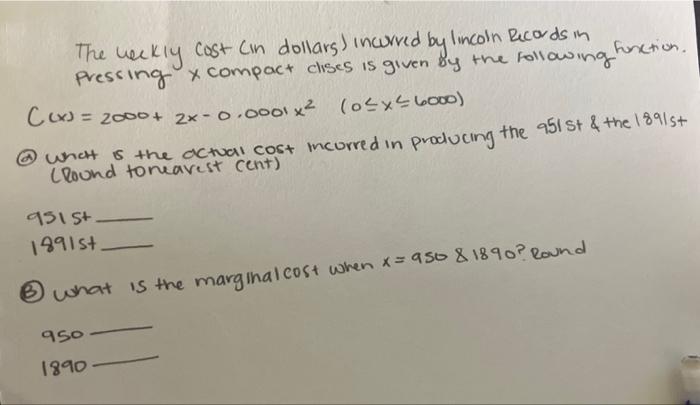 The weekly cost (in dollars) incurred by lincoln Records in
pressing x compact discs is given by the following function.
C(x) = 2000 + 2x - 0.0001x² (0≤x≤6000)
(a) what is the actual cost incurred in producing the 951st & the 1891st
(Round to nearest cent)
951st ____
1891st ____
(B) what is the marginal cost when x = 950 & 1890? Round
950 ____
1890 ____